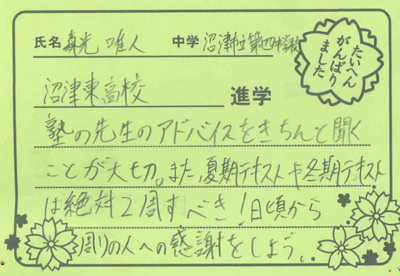 氏名 森光 唯人 中学 沼津市立第四中学校
たいへん
がんばり
ました
沼津東高校 進学
塾の先生のアドバイスをきちんと聞く
ことが大切。また、夏期テキストや冬期テキスト
は絶対2周すべき!日頃から
周りの人への感謝をしよう。